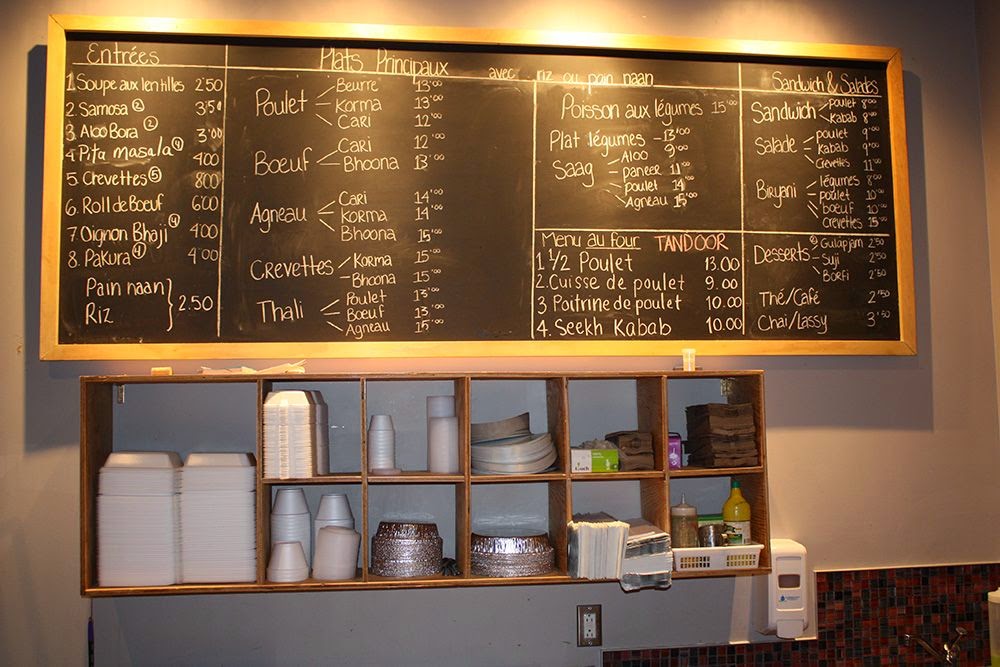 Entrées
1. Soupe aux lentilles 2.50
2. Samosa (2) 3.50
3. Aloo Bora (2) 3.00
4. Pita masala (4) 4.00
5. Crevettes (5) 8.00
6. Roll de Boeuf 6.00
7. Oignon Bhaji (4) 4.00
8. Pakura (4) 4.00
Pain naan
Riz } 2.50
Plats Principaux avec riz ou pain naan
Poulet
Beurre 13.00
Korma 13.00
Cari 12.00
Boeuf
Cari 12.00
Bhoona 13.00
Agneau
Cari 14.00
Korma 14.00
Bhoona 15.00
Crevettes
Korma 15.00
Bhoona 15.00
Thali
Poulet 13.00
Boeuf 13.00
Agneau 15.00
Poisson aux légumes 15.00
Plat légumes - 13.00
Saag
Aloo 9.00
paneer 11.00
poulet 14.00
Agneau 15.00
Menu au four TANDOOR
1. 1/2 Poulet 13.00
2. Cuisse de poulet 9.00
3 Poitrine de poulet 10.00
4. Seekh Kabab 10.00
Sandwich & Salades
Sandwich
poulet 8.00
Kabab 8.00
Salade
poulet 9.00
Kabab 9.00
Crevettes 11.00
Biryani
légumes 8.00
poulet 10.00
boeuf 10.00
Crevettes 15.00
Desserts
(2) Gulapjam 2.50
Suji 2.50
Borfi 2.50
Thé/Café 2.50
Chai/Lassy 3.50